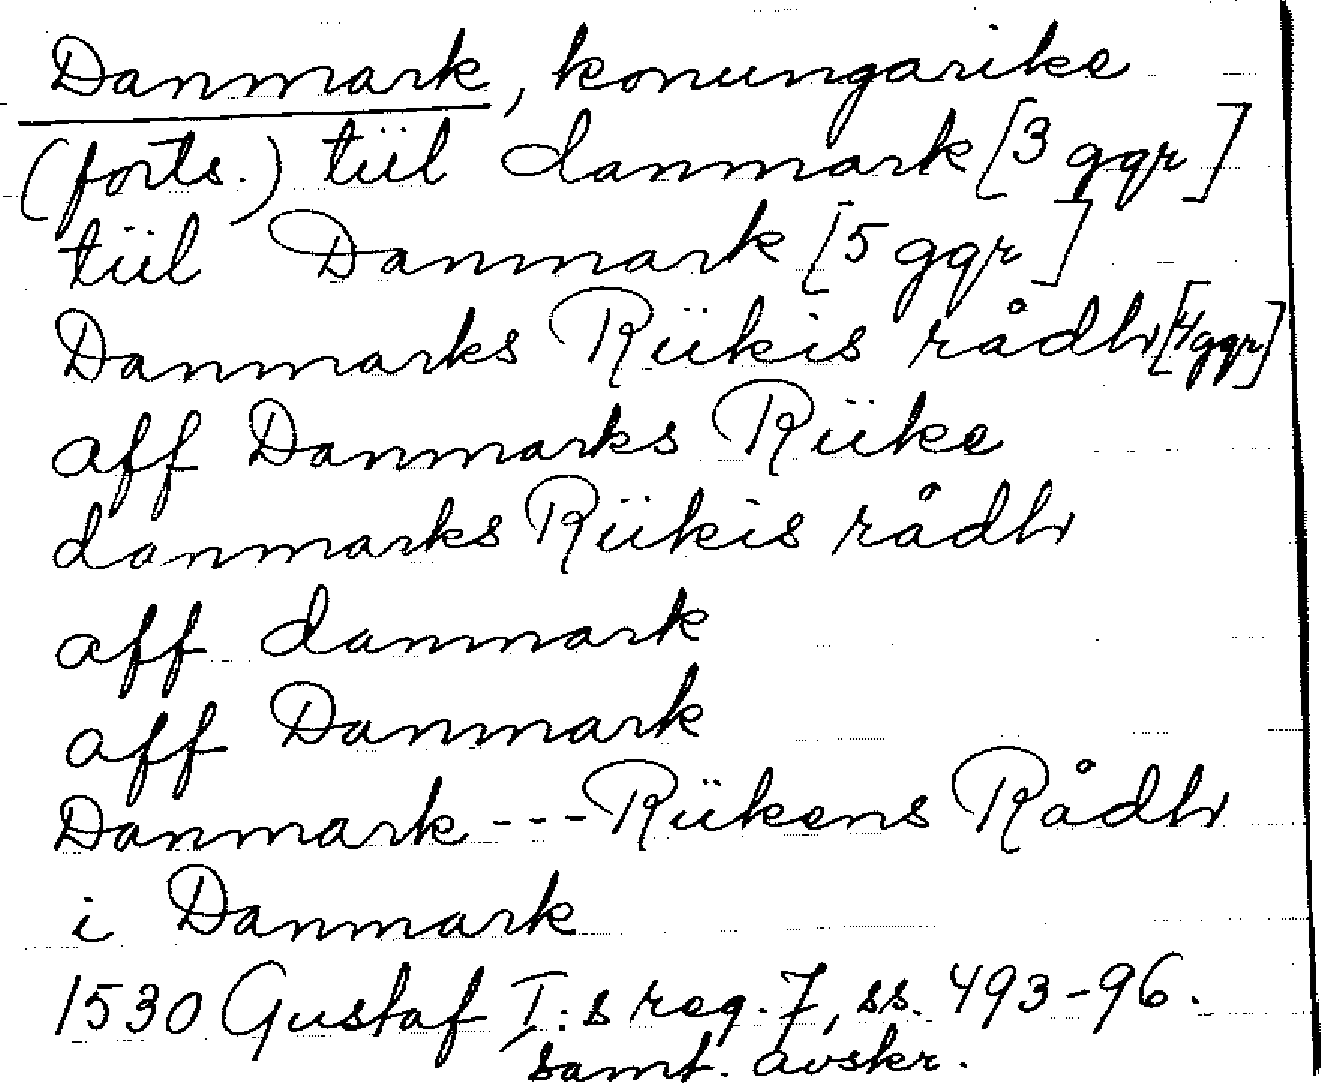 Danmark, konungarike
(forts.) tiil danmark [3 ggr]
tiil Danmark [5 ggr]
Danmarks Riikis rådh [4 ggr]
aff Danmarks Riike
danmarks Riikis rådh
aff danmark
aff Danmark
Danmark --- Riikens Rådh
i Danmark
1530 Gustaf I:s reg. 7, ss. 493-96.
samt. avskr.